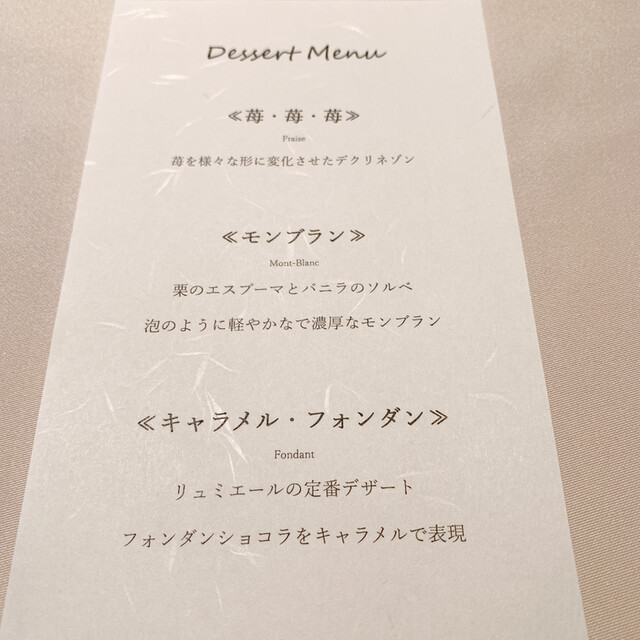 Dessert Menu
≪苺・苺・苺≫
Fraise
苺を様々な形に変化させたデクリネゾン
≪モンブラン≫
Mont-Blanc
栗のエスプーマとバニラのソルベ
泡のように軽やかなで濃厚なモンブラン
≪キャラメル・フォンダン≫
Fondant
リュミエールの定番デザート
フォンダンショコラをキャラメルで表現